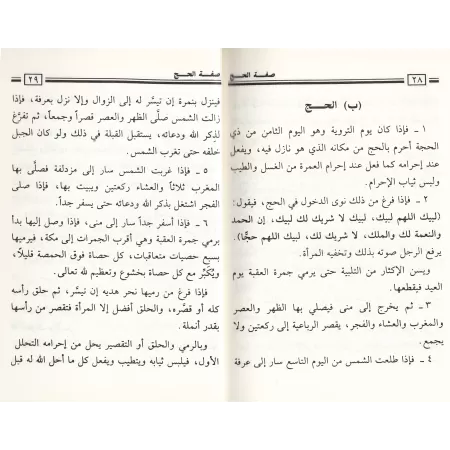 ٢٨ صفة الحج
(ب) الحـــج
١ ـ فإذا كان يوم التروية وهو اليوم الثامن من ذي
الحجة أحرم بالحج من مكانه الذي هو نازل فيه، ويفعل
عند إحرامه كما فعل عند إحرام العمرة من الغسل والطيب
ولبس ثياب الإحرام.
٢ ـ فإذا فرغ من ذلك نوى الدخول في الحج، فيقول:
(لبيك اللهم لبيك، لبيك لا شريك لك لبيك، إن الحمد
والنعمة لك والملك، لا شريك لك، لبيك اللهم حجًّا).
يرفع الرجل صوته بذلك وتخفيه المرأة.
ويسن الإكثار من التلبية حتى يرمي جمرة العقبة يوم
العيد فيقطعها.
٣ ـ ثم يخرج إلى منى فيصلي بها الظهر والعصر
والمغرب والعشاء والفجر، يقصر الرباعية إلى ركعتين ولا
يجمع.
٤ ـ فإذا طلعت الشمس من اليوم التاسع سار إلى عرفة
صفة الحج ٢٩
فينزل بنمرة إن تيسَّر له إلى الزوال وإلا نزل بعرفة، فإذا
زالت الشمس صلَّى الظهر والعصر قصراً وجمعاً، ثم تفرَّغ
لذكر الله ودعائه، يستقبل القبلة في ذلك ولو كان الجبل
خلفه حتى تغرب الشمس.
٥ ـ فإذا غربت الشمس سار إلى مزدلفة فصلَّى بها
المغرب ثلاثاً والعشاء ركعتين ويبيت بها، فإذا صلى
الفجر اشتغل بذكر الله ودعائه حتى يسفر جداً.
٦ ـ فإذا أسفر جداً سار إلى منى، فإذا وصل إليها بدأ
برمي جمرة العقبة وهي أقرب الجمرات إلى مكة، فيرميها
بسبع حصيات متعاقبات، كل حصاة فوق الحمصة قليلاً،
ويُكَبِّر مع كل حصاة بخشوع وتعظيم لله تعالى.
فإذا فرغ من رميها نحر هديه إن تيسر، ثم حلق رأسه
كله أو قصَّره، والحلق أفضل إلا المرأة فتقصر من رأسها
بقدر أنملة.
وبالرمي والحلق أو التقصير يحل من إحرامه التحلل
الأول، فيلبس ثيابه ويتطيب ويفعل كل ما أحل الله له قبل